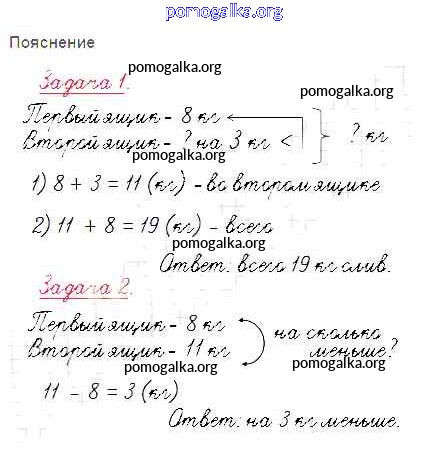 pomogalka.org
Пояснение
pomogalka.org
Задача 1.
pomogalka.org
Первый ящик - 8 кг
Второй ящик - ? на 3 кг <
? кг
pomogalka.org
1) 8 + 3 = 11 (кг) - во втором ящике
2) 11 + 8 = 19 (кг) - всего
pomogalka.org
Ответ: всего 19 кг слив.
Задача 2.
pomogalka.org
Первый ящик - 8 кг
Второй ящик - 11 кг
на сколько
меньше?
pomogalka.org
pomogalka.org
11 - 8 = 3 (кг)
Ответ: на 3 кг меньше.
pomogalka.org